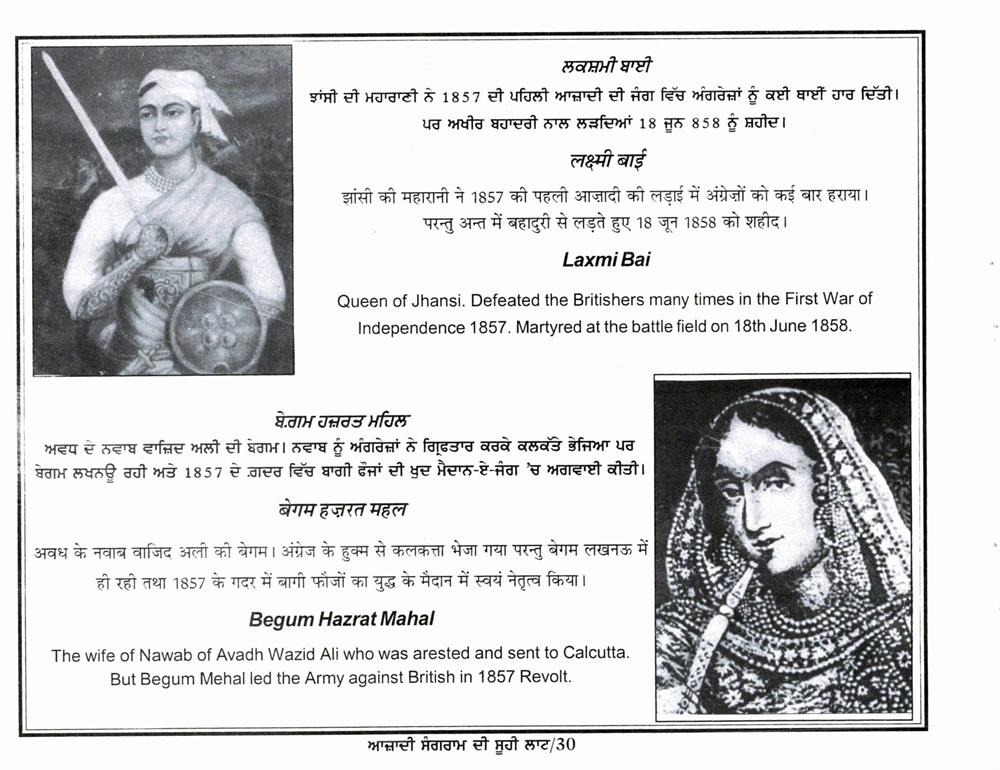 ਲਕਸ਼ਮੀ ਬਾਈ
ਝਾਂਸੀ ਦੀ ਮਹਾਰਾਣੀ ਨੇ 1857 ਦੀ ਪਹਿਲੀ ਆਜ਼ਾਦੀ ਦੀ ਜੰਗ ਵਿੱਚ ਅੰਗਰੇਜ਼ਾਂ ਨੂੰ ਕਈ ਥਾਈਂ ਹਾਰ ਦਿੱਤੀ।
ਪਰ ਅਖੀਰ ਬਹਾਦਰੀ ਨਾਲ ਲੜਦਿਆਂ 18 ਜੂਨ 858 ਨੂੰ ਸ਼ਹੀਦ।
लक्ष्मी बाई
झांसी की महारानी ने 1857 की पहली आज़ादी की लड़ाई में अंग्रेज़ों को कई बार हराया।
परन्तु अन्त में बहादुरी से लड़ते हुए 18 जून 1858 को शहीद।
Laxmi Bai
Queen of Jhansi. Defeated the Britishers many times in the First War of
Independence 1857. Martyred at the battle field on 18th June 1858.
ਬੇਗ਼ਮ ਹਜ਼ਰਤ ਮਹਿਲ
ਅਵਧ ਦੇ ਨਵਾਬ ਵਾਜ਼ਿਦ ਅਲੀ ਦੀ ਬੇਗਮ। ਨਵਾਬ ਨੂੰ ਅੰਗਰੇਜ਼ਾਂ ਨੇ ਗ੍ਰਿਫਤਾਰ ਕਰਕੇ ਕਲਕੱਤੇ ਭੇਜਿਆ ਪਰ
ਬੇਗਮ ਲਖਨਊ ਰਹੀ ਅਤੇ 1857 ਦੇ ਗ਼ਦਰ ਵਿੱਚ ਬਾਗੀ ਫੌਜਾਂ ਦੀ ਖੁਦ ਮੈਦਾਨ-ਏ-ਜੰਗ 'ਚ ਅਗਵਾਈ ਕੀਤੀ।
बेगम हज़रत महल
अवध के नवाब वाजिद अली की बेगम। अंग्रेज के हुक्म से कलकत्ता भेजा गया परन्तु बेगम लखनऊ में
ही रही तथा 1857 के गदर में बागी फौजों का युद्ध के मैदान में स्वयं नेतृत्व किया।
Begum Hazrat Mahal
The wife of Nawab of Avadh Wazid Ali who was arested and sent to Calcutta.
But Begum Mehal led the Army against British in 1857 Revolt.
ਆਜ਼ਾਦੀ ਸੰਗਰਾਮ ਦੀ ਸੂਹੀ ਲਾਟ/30